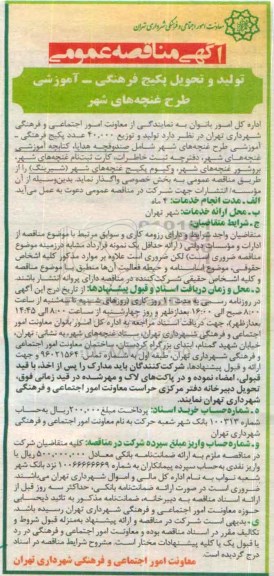 معاونت امور اجتماعی و فرهنگی شهرداری تهران
آگهی مناقصه عمومی
تولید و تحویل پکیج فرهنگی - آموزشی
طرح غنچه‌های شهر
اداره کل امور بانوان به نمایندگی از معاونت امور اجتماعی و فرهنگی
شهرداری تهران در نظر دارد تولید و توزیع ۴۰،۰۰۰ عدد پکیج فرهنگی -
آموزشی طرح غنچه‌های شهر شامل صندوقچه هدایا، کتابچه آموزشی
غنچه‌های شهر، دفترچه ثبت خاطرات، کارت ثبت‌نام غنچه‌های شهر،
بروشور غنچه‌های شهر و کیوم پکیج غنچه‌های شهر (شیرینگ) را از
طریق مناقصه عمومی به بخش خصوصی واگذار نماید. بدین‌وسیله از آن
مؤسسه/انتشارات جهت شرکت در مناقصه عمومی دعوت به عمل می‌آید.
الف. مدت انجام خدمات: ۴ ماه
ب. محل ارائه خدمات: شهر تهران
ج. شرایط متقاضیان:
متقاضیان واجد شرایط و دارای رزومه کاری و سوابق مرتبط با موضوع مناقصه از
ادارات و مؤسسات دولتی (ارائه حداقل یک نمونه قرارداد مشابه در زمینه موضوع
مناقصه ضروری است) لکن ضروری است علاوه بر موارد مذکور کلیه اشخاص
حقوقی، موضوع اساسنامه و حیطه فعالیت آن‌ها منطبق با موضوع مناقصه
و کلیه اشخاص حقیقی شرکت‌کننده در مناقصه دارای پروانه انتشار باشند.
د. محل و زمان دریافت اسناد و قبول پیشنهادها: از تاریخ درج این آگهی
در روزنامه رسمی به مدت ۱۰ روز کاری (روزهای شنبه تا سه‌شنبه از ساعت
۸:۰۰ صبح الی ۱۶:۰۰ بعدازظهر و روز چهارشنبه از ساعت ۸:۰۰ الی ۱۴:۴۵
بعدازظهر)، جهت دریافت اسناد مراجعه به اداره کل امور بانوان معاونت امور
اجتماعی و فرهنگی شهرداری تهران، ستاد غنچه‌های شهر به نشانی تهران،
خیابان شهید گمنام، ابتدای بزرگراه کردستان، ساختمان معاونت امور اجتماعی
و فرهنگی شهرداری تهران، طبقه اول به شماره تماس: ۹۶۰۲۱۵۶۴ و جهت
ارائه و قبول پیشنهادها، شرکت‌کنندگان باید مدارک را پس از اخذ، با قید
قبولی، امضاء نموده و در پاکت‌های لاک و مهرشده در قید زمانی فوق،
تحویل دبیرخانه دفتر مرکزی حراست معاونت امور اجتماعی و فرهنگی
شهرداری تهران نمایند.
ه. شماره حساب خرید اسناد: پرداخت مبلغ ۲۰۰،۰۰۰ ریال به حساب
۱۰۰۳۱۳ بانک شهر شعبه حرکت به نام معاونت امور اجتماعی و فرهنگی
شهرداری تهران
و. شماره حساب واریز مبلغ سپرده شرکت در مناقصه: کلیه متقاضیان شرکت
در مناقصه ملزم به ارائه ضمانت‌نامه بانکی معادل ۵۰۰،۰۰۰،۰۰۰ ریال یا
واریز نقدی به‌حساب سپرده پیمانکاران به شماره ۱۰۰۶۶۶۶۶۶۹ نزد بانک شهر
شعبه به نام اداره کل مالی و اموال شهرداری تهران می‌باشند.
ضروری است در صورت ارائه ضمانت‌نامه بانکی، حداکثر سه روز قبل از
ارائه اسناد مناقصه به دبیرخانه، ضمانت‌نامه مذکور به تائید ذیحسابی
حوزه معاونت امور اجتماعی و فرهنگی شهرداری تهران رسیده باشد.
ی. بدیهی است شرکت در مناقصه و ارائه پیشنهاد به‌منزله قبول شروط و
تکالیف مقرر در اسناد مناقصه بوده و معاونت امور اجتماعی و فرهنگی در رد
یا قبول یک یا کلیه پیشنهادات مختار است. مشروح شرایط مناقصه در اسناد
درج گردیده است.
معاونت امور اجتماعی و فرهنگی شهرداری تهران